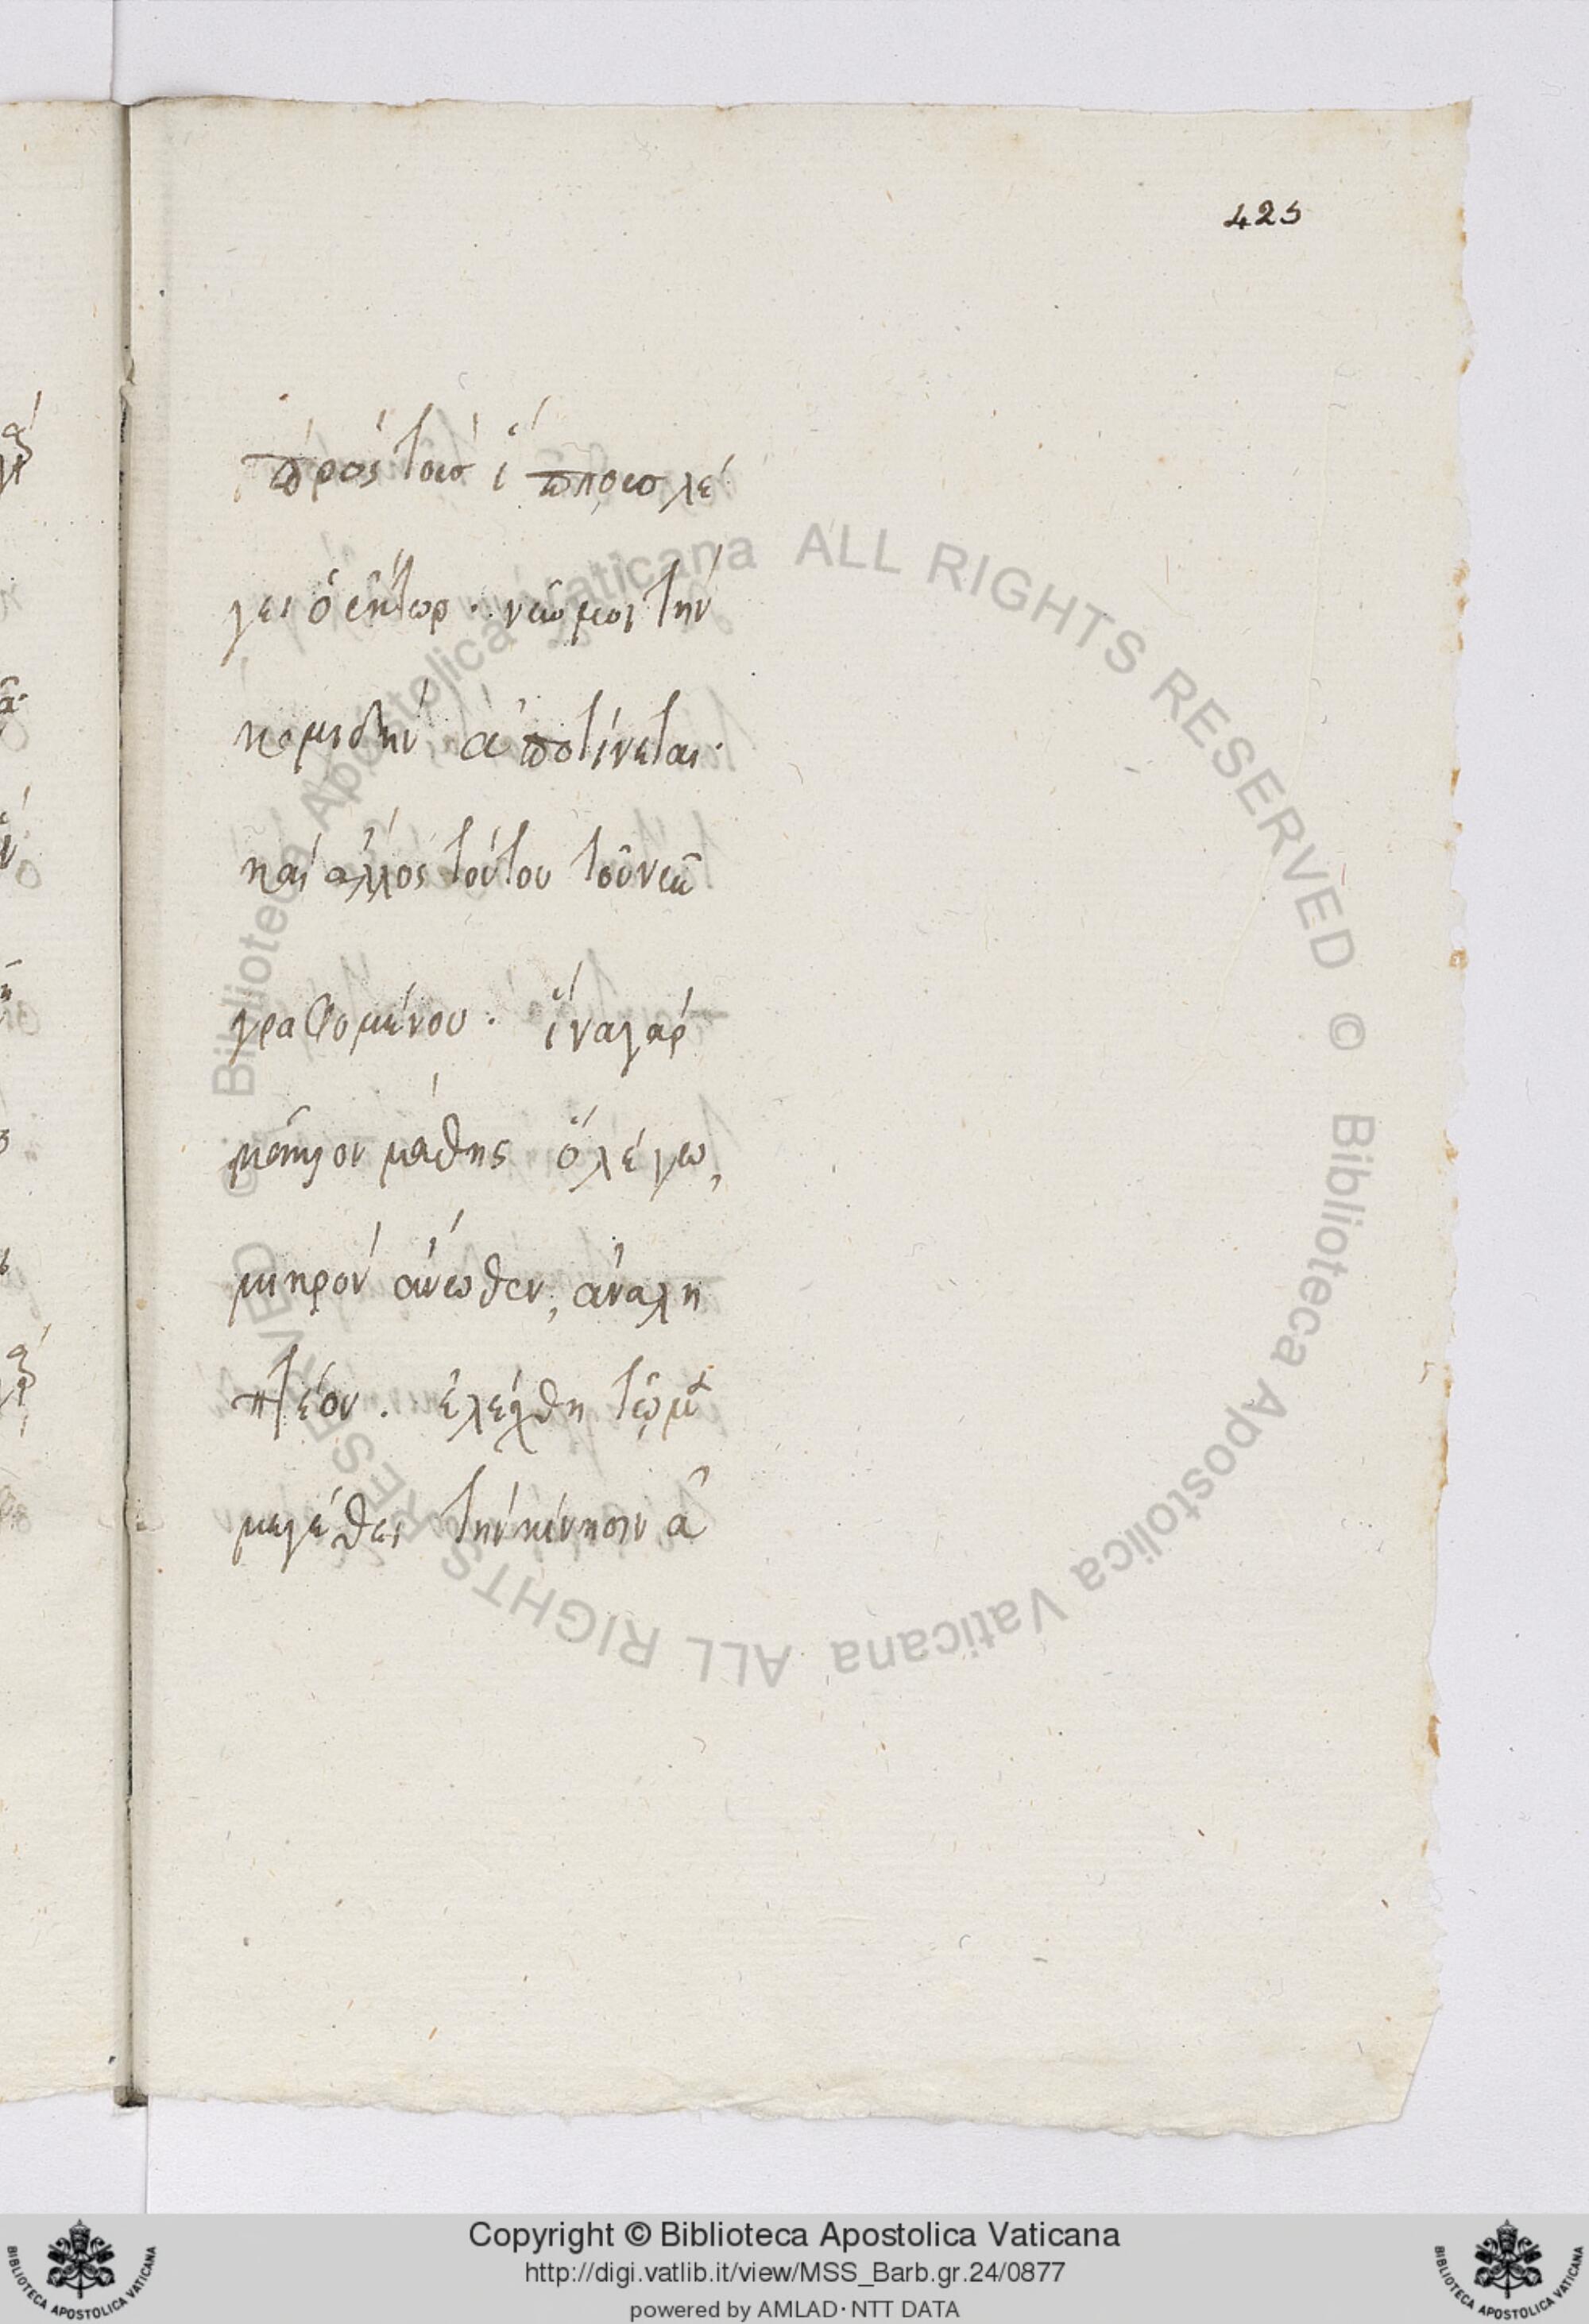 425
πρὸς τοὺς ἵππους λέ
γει ὁ ἕκτωρ · νῦν μοι τὴν
κομιδὴν ἀποτίνεται ·
καὶ ἄλλος τούτου τοῦ νεω
γραφομένου · ἵνα γὰρ
μᾶλλον μάθης ὃ λέγω,
μικρὸν ἄνωθεν, ἀναλη
πτέον . ἐλέχθη τῶ μ
μεγέθει τὴν κίνησιν ἀ
© Biblioteca Apostolica Vaticana ALL RIGHTS RESERVED © Biblioteca Apostolica Vaticana ALL RIGHTS RESERVED
Copyright © Biblioteca Apostolica Vaticana
http://digi.vatlib.it/view/MSS_Barb.gr.24/0877
powered by AMLAD · NTT DATA
BIBLIOTECA APOSTOLICA VATICANA
BIBLIOTECA APOSTOLICA VATICANA